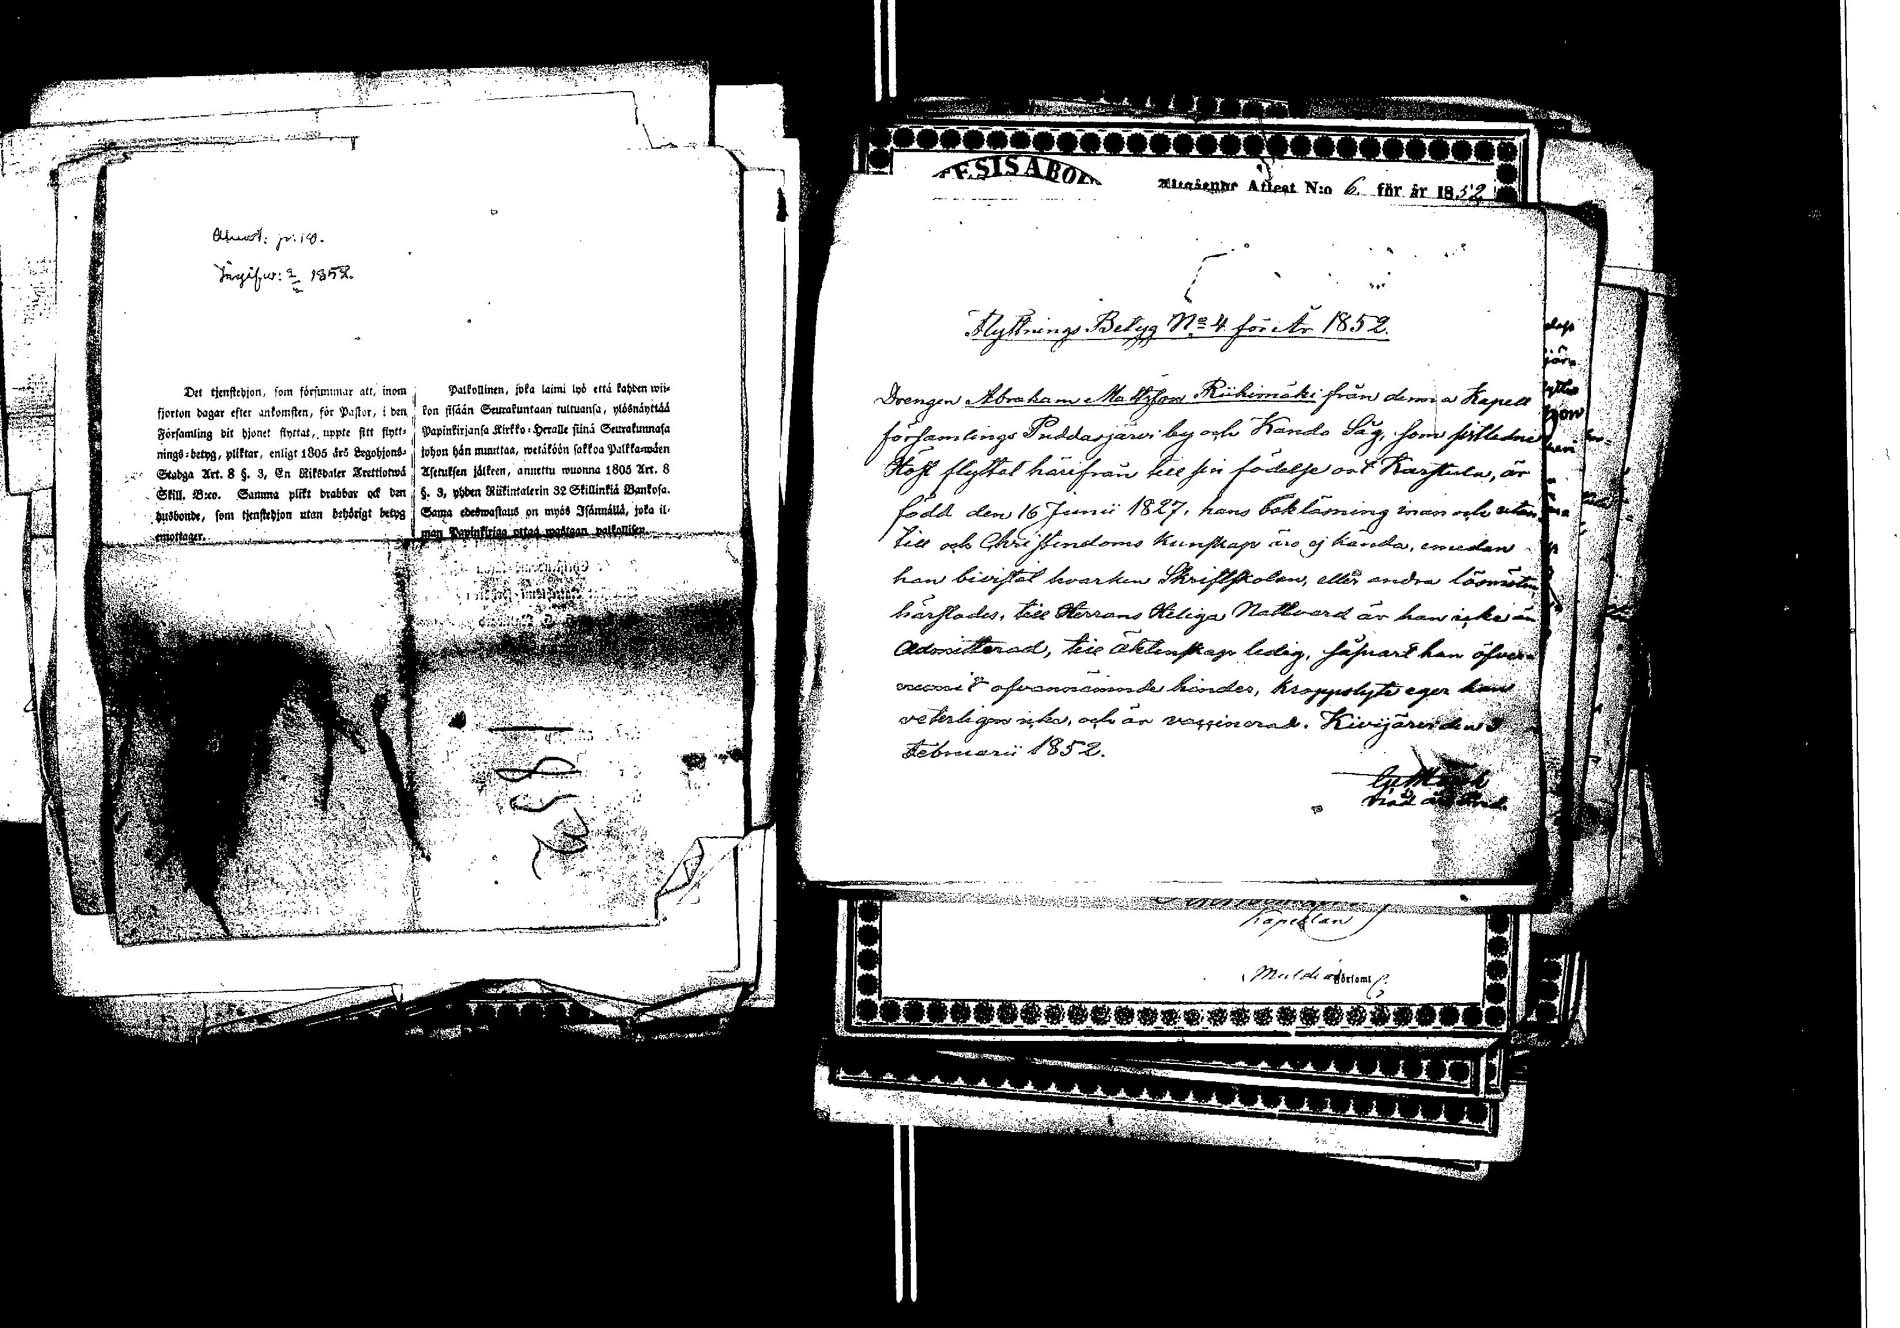 Ingifw: 1852.
Det tjenstehjon, som försummar att, inom
fjorton dagar efter ankomsten, för Pastor, i den
Församling dit hjonet flyttat, uppte sitt flytt-
nings-betyg, pliktar, enligt 1805 års Legohjons-
Stadga Art. 8 §. 3, En Riksdaler Trettiotwå
Skill. B:co. Samma plikt drabbar ock den
husbonde, som tjenstehjon utan behörigt betyg
emottager.
Palkollinen, joka laimi lyö että kahden wii-
kon sisään Seurakuntaan tultuansa, ylösnäyttää
Papinkirjansa Kirkko-Herralle siinä Seurakunnasa
johon hän muuttaa, wetäköön sakkoa Palkka-wäen
Asetuksen jälkeen, annettu wuonna 1805 Art. 8
§. 3, yhden Riikintalerin 32 Skillinkiä Bankosa.
Sama edeswastaus on myös Isännällä, joka il-
man Papinkirjaa ottaa wastaan palkollisen.
1852
ESIS ABO
Utgående Attest N:o 6 för år 1852
Flyttnings Betyg No 4 för År 1852.
Drengen Abraham Mattsson Riihimäki från denna Kapell
församlings Puddasjärvi by och Kando Säg, som sistledne
Höst flyttat härifrån till sin födelse ort Karstula, är
född den 16 Junii 1827, hans bokläsning innan och utan
till och Christendoms kunskap äro ej kända, emedan
han bivistat hvarken Skriftskolan, eller andra läsmöten
härstädes, till Herrans Heliga Nattvard är han icke än
Admitterad, till äktenskap ledig, såsnart han öfver-
ofvannämnde hinder, kroppslyte eger han
veterligen icke, och är vaccinerad. Kivijärvi den 3
Februarii 1852.
Kapellan
Multia